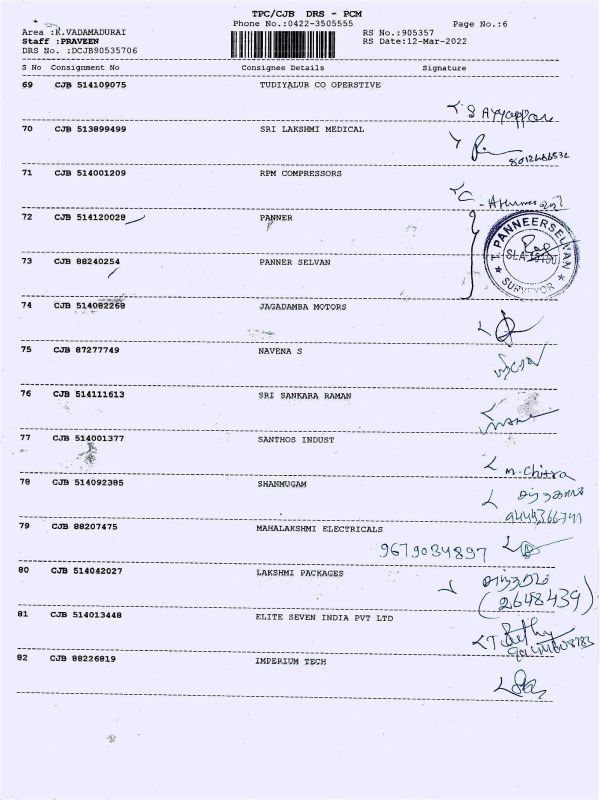 TPC/CJB DRS - PCM
Phone No.:0422-3505555 Page No.:6
Area :K.VADAMADURAI RS No.:905357
Staff :PRAVEEN RS Date:12-Mar-2022
DRS No. :DCJB90535706
S No Consignment No Consignee Details Signature
69 CJB 514109075 TUDIYALUR CO OPERSTIVE
S Ayyappan
70 CJB 513899499 SRI LAKSHMI MEDICAL
71 CJB 514001209 RPM COMPRESSORS
72 CJB 514120028 PANNER
T. PANNEERSELVAN
SURVEYOR
73 CJB 88240254 PANNER SELVAN
74 CJB 514082268 JAGADAMBA MOTORS
75 CJB 87277749 NAVENA S
76 CJB 514111613 SRI SANKARA RAMAN
77 CJB 514001377 SANTHOS INDUST
m. Chitra
78 CJB 514092385 SHANMUGAM
79 CJB 88207475 MAHALAKSHMI ELECTRICALS
9679034897
80 CJB 514042027 LAKSHMI PACKAGES
(2648439)
81 CJB 514013448 ELITE SEVEN INDIA PVT LTD
82 CJB 88226819 IMPERIUM TECH